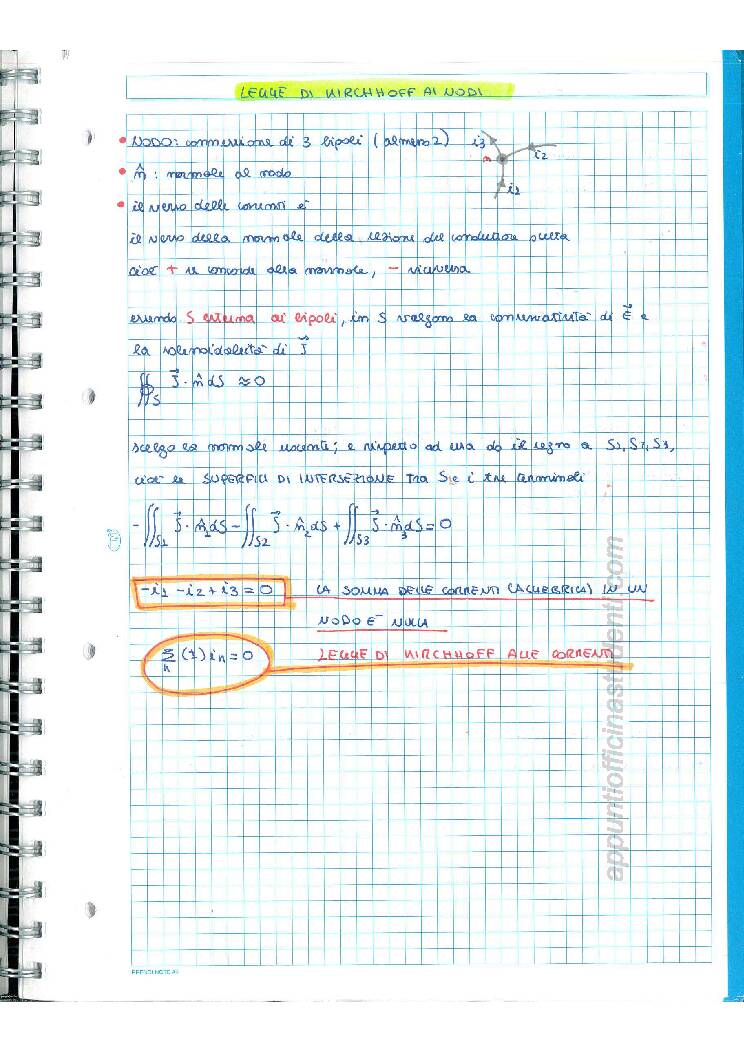 LEGGE DI KIRCHHOFF AI NODI
• NODO: connessione di 3 bipoli (almeno 2)
i3
i2
n
i1
• n̂ : normale al nodo
• il verso delle correnti è
il verso della normale della sezione del conduttore scelta
cioè + se concorde alla normale, - viceversa
essendo S esterna ai bipoli, in S valgono la conservatività di E⃗ e
la solenoidalità di J⃗
∯S J⃗ · n̂ dS ≈ 0
scelgo la normale uscente; e rispetto ad essa do il segno a S1, S2, S3,
cioè le SUPERFICI DI INTERSEZIONE tra S e i tre terminali
-∬S1 J⃗ · n̂1 dS - ∬S2 J⃗ · n̂2 dS + ∬S3 J⃗ · n̂3 dS = 0
-i1 - i2 + i3 = 0 LA SOMMA DELLE CORRENTI (ALGEBRICA) IN UN
NODO E' NULLA
Σn (±) in = 0 LEGGE DI KIRCHHOFF ALLE CORRENTI
appuntiofficinastudenti.com